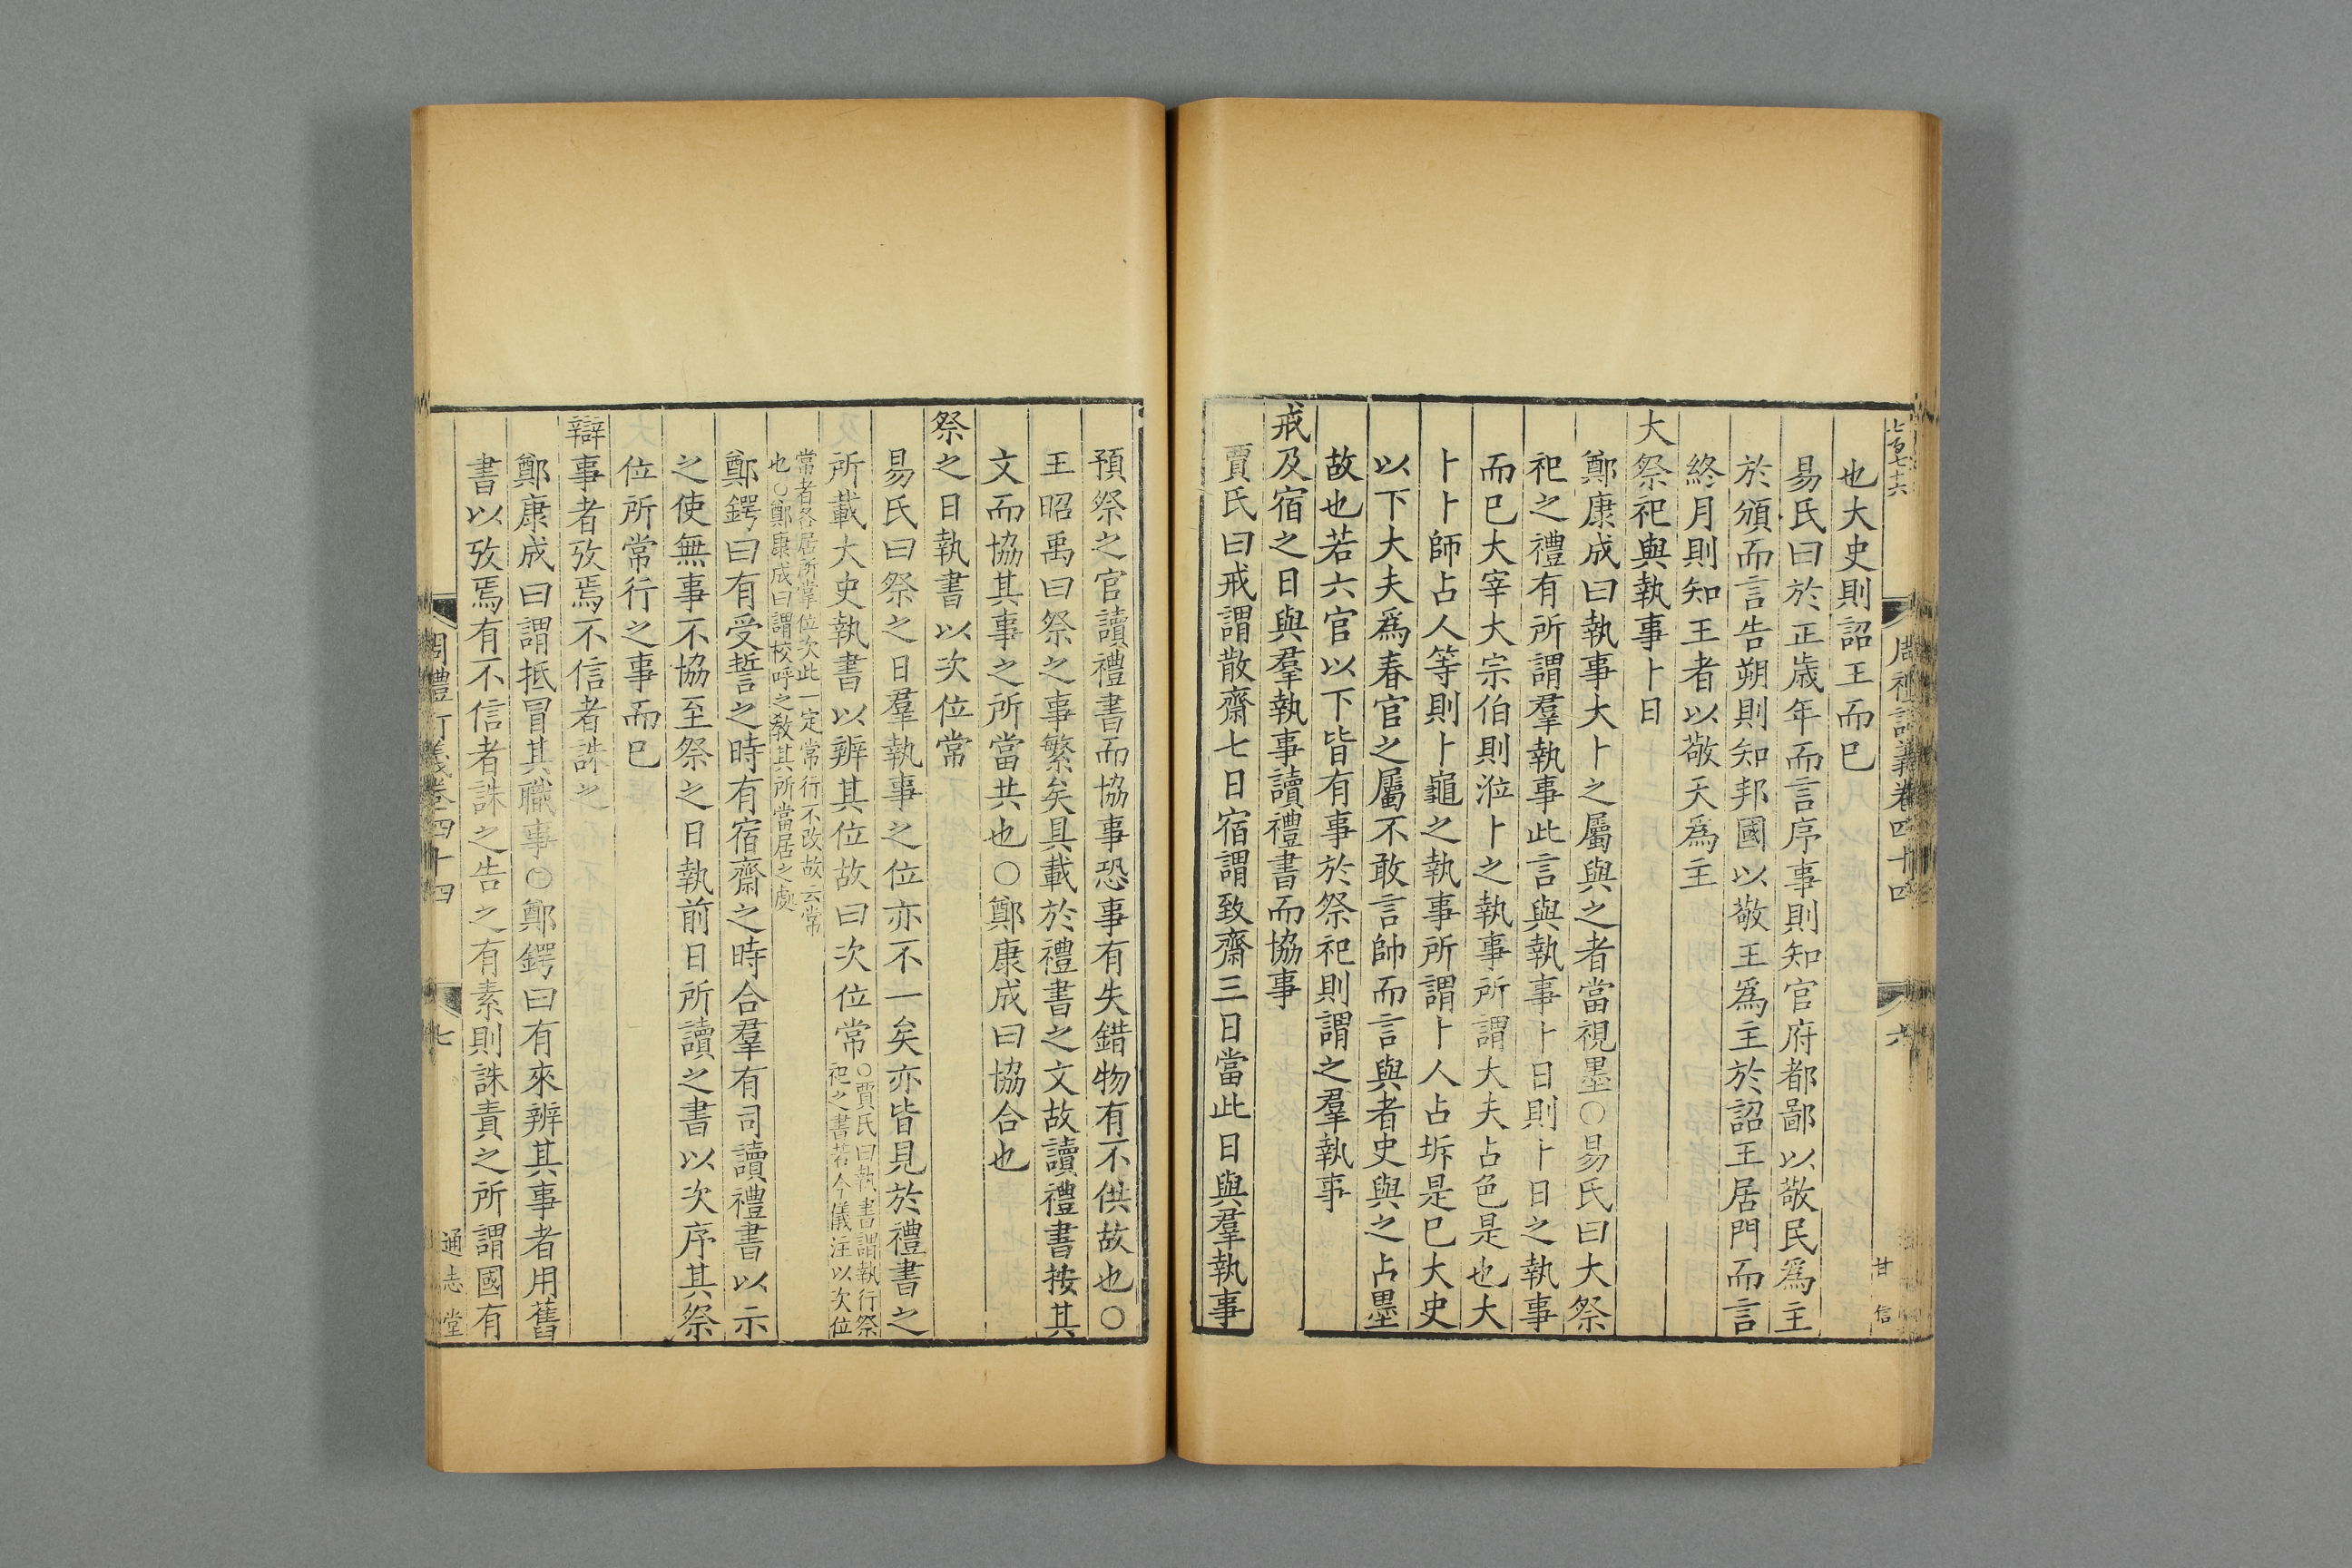 周禮訂義卷四十四
六
甘信
也大史則詔王而已
易氏曰於正歲年而言序事則知官府都鄙以敬民爲主
於頒而言告朔則知邦國以敬王爲主於詔王居門而言
終月則知王者以敬天爲主
大祭祀與執事卜日
鄭康成曰執事大卜之屬與之者當視墨○易氏曰大祭
祀之禮有所謂羣執事此言與執事卜日則卜日之執事
而已大宰大宗伯則涖卜之執事所謂大夫占色是也大
卜卜師占人等則卜龜之執事所謂卜人占坼是已大史
以下大夫爲春官之屬不敢言帥而言與者史與之占墨
故也若六官以下皆有事於祭祀則謂之羣執事
戒及宿之日與羣執事讀禮書而協事
賈氏曰戒謂散齋七日宿謂致齋三日當此日與羣執事
預祭之官讀禮書而協事恐事有失錯物有不供故也○
王昭禹曰祭之事繁矣具載於禮書之文故讀禮書按其
文而協其事之所當共也○鄭康成曰協合也
祭之日執書以次位常
易氏曰祭之日羣執事之位亦不一矣亦皆見於禮書之
所載大史執書以辨其位故曰次位常
○賈氏曰執書謂執行祭
祀之書若今儀注以次位
常者各居所掌位次此一定常行不改故云常
也○鄭康成曰謂校呼之教其所當居之處
鄭鍔曰有受誓之時有宿齋之時合羣有司讀禮書以示
之使無事不協至祭之日執前日所讀之書以次序其祭
位所常行之事而已
辯事者攷焉不信者誅之
鄭康成曰謂抵冒其職事○鄭鍔曰有來辨其事者用舊
書以攷焉有不信者誅之告之有素則誅責之所謂國有
周禮訂義卷四十四
七
通志堂